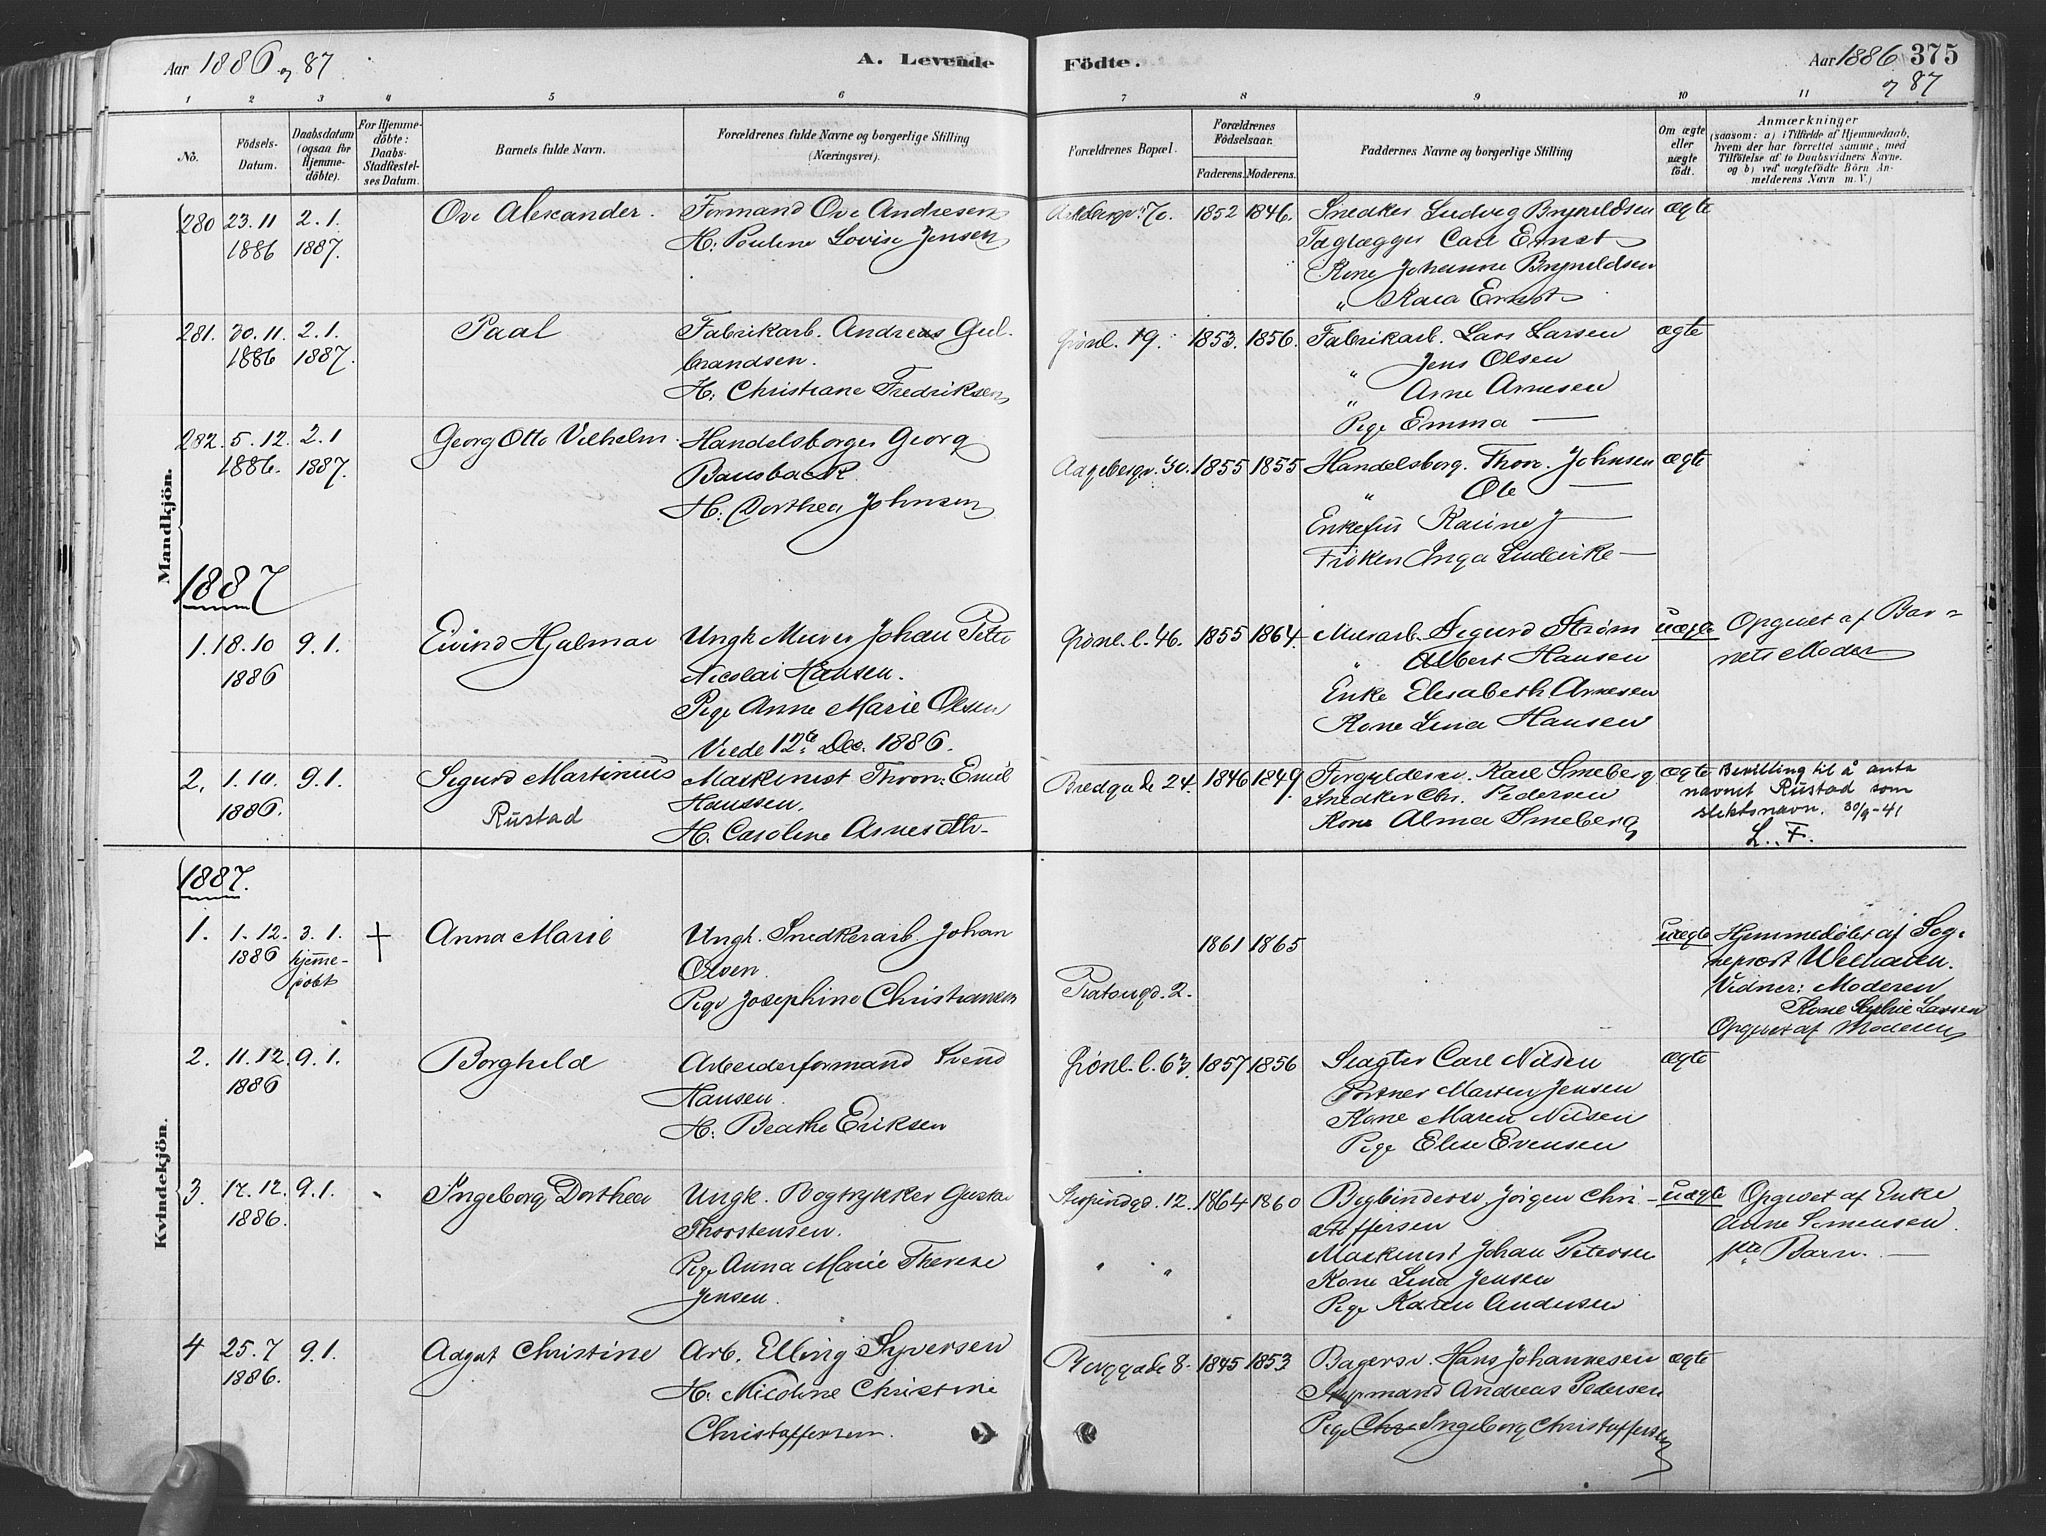 Aar 1886 og 87
A. Levende
Födte.
Aar 1886 375
og 87
1 2 3 4 5 6 7 8 9 10 11
No.
Födsels-
Datum.
Daabsdatum
(ogsaa for
Hjemme-
döbte).
For Hjemme-
döbte:
Daabs-
Stadfæstel-
ses Datum.
Barnets fulde Navn.
Forældrenes fulde Navne og borgerlige Stilling
(Næringsvei).
Forældrenes Bopæl.
Forældrenes
Födselsaar.
Faderens. Moderens.
Faddernes Navne og borgerlige Stilling
Om ægte
eller
uægte
födt.
Anmærkninger
(saasom: a) i Tilfælde af Hjemmedaab,
hvem der har forrettet samme, med
Tilföielse af to Daabsvidners Navne.
og b) ved uægtefödte Börn An-
melderens Navn m. V.)
Mandkjön.
280 23.11 1886
2.1. 1887.
Ove Alexander.
Formand Ove Andresen
H. Pouline Lovise Jensen
70. 1852 1846.
Snedker Ludvig Brynildsen
Carl Ernst
Kone Johanne Brynildsen
" Kaia Ernst
ægte
281. 30.11. 1886
2.1. 1887.
Paal
Fabrikarb. Andreas Gul-
brandsen.
H. Christiane Fredriksen
Grönl. 19. 1853. 1856.
Fabrikarb. Lars Larsen
" Jens Olsen
" Arne Arnesen
Pige Emma —
ægte
282. 5.12. 1886.
2.1 1887.
Georg Otto Vilhelm.
Handelsborger Georg
Bausback
H. Dorthea Johnsen
Aagebergv. 30. 1855 1855
Handelsborg. Thorv. Johnsen
" Ole —
Enkefru Karine J —
Frøken Inga Ludvike —
ægte
1887
1. 18.10 1886
9.1.
Eivind Hjalmar
Ungk. Murer Johan Petter
Nicolai Hansen.
Pige Anne Marie Olsen
Viede 12te Dec. 1886.
Grönl. l. 46. 1855 1864.
Murarb. Sigurd Strøm
" Albert Hansen
Enke Elisabeth Arnesen
Kone Lina Hansen
uægte
Opgivet af Bar-
nets Moder
2. 1.10. 1886.
9.1.
Sigurd Martinius
Rustad
Maskinist Thorv. Emil
Hanssen.
H. Caroline Arnesdtr.
Bredgade 24. 1846 1849.
Forgyldersv. Karl Smeberg
Snedker Chr. Pedersen
Kone Alma Smeberg
ægte
Bevilling til å anta
navnet Rustad som
slektsnavn. 30/9-41
L. F.
Kvindekjön.
1887.
1. 1.12. 1886
3.1. hjemme-
døbt
†
Anna Marie
Ungk. Snedkerarb Johan
Olsen.
Pige Josephine Christiansen
2.
1861 1865
uægte
Hjemmedøbt af Sog-
nepræst Welhaven.
Vidner: Moderen
Kone Sophie Larsen
Opgivet af Moderen
2. 11.12. 1886
9.1.
Borghild
Arbeiderformand Svend
Hansen.
H. Beathe Eriksen
Grönl. l. 63. 1857 1856
Slagter Carl Nilsen
Portner Marten Jensen
Kone Maren Nilsen
Pige Elise Evensen
ægte
3. 17.12. 1886.
9.1.
Ingeborg Dorthea
Ungk. Bogtrykker Gustav
Thorstensen.
Pige Anna Marie Therese
Jensen.
12. 1864 1860
" "
Bogbindersv. Jørgen Chri-
stoffersen
Maskinist Johan Petersen
Kone Lina Jensen
Pige Karen Andersen
uægte
Opgivet af Enke
Anne Simensen.
1ste Barn. —
4 25.7 1886.
9.1.
Aagot Christine
Arb. Elling Syversen
H. Nicoline Christine
Christoffersen.
Borggade 8. 1845 1853
Bagersv. Hans Johannesen
Andreas Pedersen
Pige Ingeborg Christoffersen
ægte